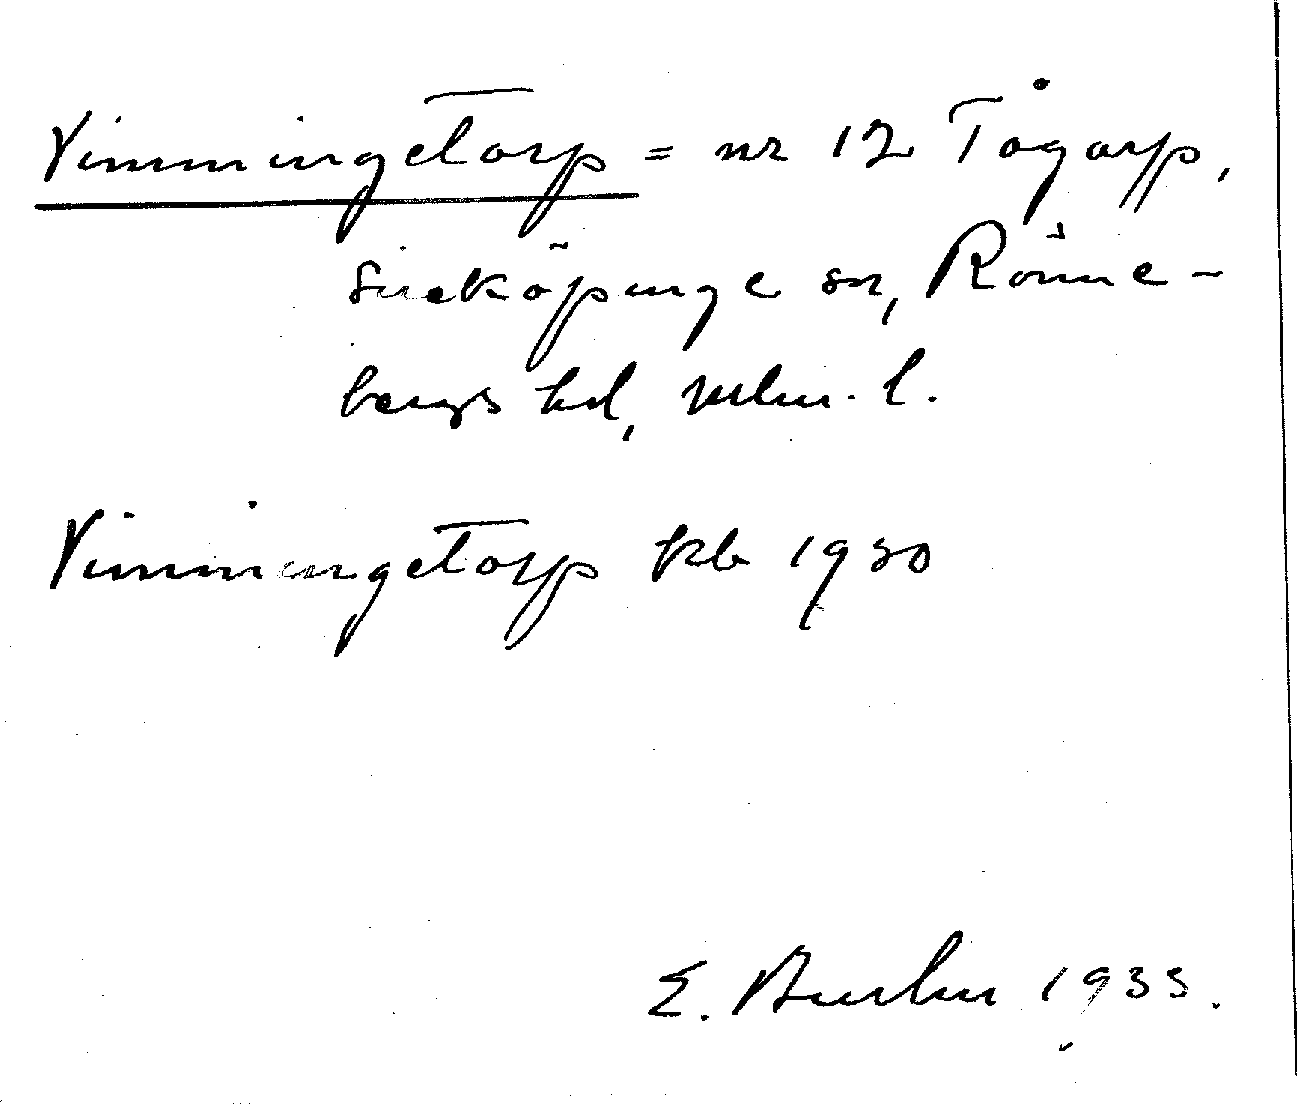 Vimmingetorp = nr 12 Tågarp,
Sireköpinge sn, Rönne-
bergs hd, Mlm. l.
Vimmingetorp kb 1930
E. 1933.